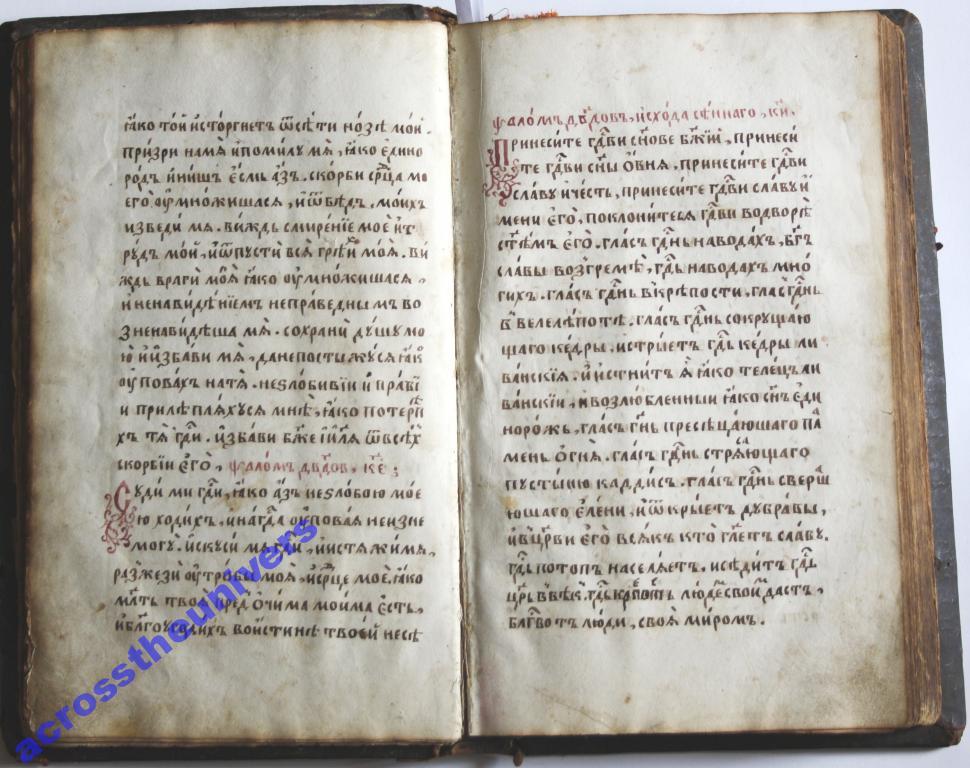 ꙗ҆́ко то́й и҆сто́ргнетъ ѿ сѣ́ти но́зѣ мои̑.
при́зри на мѧ̀ и҆ поми́лꙋй мѧ̀, ꙗ҆́ко є҆дино
ро́дъ и҆ ни́щъ є҆́смь а҆́зъ. ско́рби срⷣца мо
егѡ̀ ᲂу҆мно́жишасѧ, и҆ ѿ бѣ́дъ мои́хъ
и҆зведи́ мѧ. ви́ждь смире́нїе моѐ и҆ т
рꙋ́дъ мо́й, и҆ ѿпꙋстѝ всѧ̀ грѣхѝ моѧ̑. ви
ждь врагѝ моѧ̑ ꙗ҆́ко ᲂу҆мно́жишасѧ,
и҆ ненави́дѣнїемъ непра́веднымъ во
зненави́дѣша мѧ̀. сохранѝ дꙋ́шꙋ мо
ю̀ и҆ и҆зба́ви мѧ̀, да не постыжꙋ́сѧ ꙗ҆́кѡ
ᲂу҆пова́хъ на тѧ̀. неѕло́бивїи и҆ пра́вїи
и҆ прилѣплѧ́хꙋсѧ мнѣ̀, ꙗ҆́ко потерпѣ́
хъ тѧ̀ гдⷭ҇и. и҆зба́ви бж҃е і҆и҃лѧ ѿ всѣ́хъ
скорбі́й є҆гѡ̀. ѱало́мъ дв҃довъ. к҃е:
Сꙋди́ ми гдⷭ҇и, ꙗ҆́ко а҆́зъ неѕло́бою мое
ю̀ ходи́хъ. и҆ на гдⷭ҇а ᲂу҆пова́ѧ не и҆зне
могꙋ̀. и҆скꙋси́ мѧ гдⷭ҇и, и҆ и҆стѧжи́ мѧ,
разжезѝ ᲂу҆тро́бы моѧ̑, и҆ срⷣце моѐ. ꙗ҆́ко
млⷭ҇ть твоѧ̀ пред̾ ѻ҆чи́ма мои́ма є҆́сть,
и҆ бл҃гоꙋгоди́хъ во и҆́стинѣ твое́й. не сѣ
ѱало́мъ дв҃довъ, и҆схо́да сѣ́ннаго, к҃и.
Принеси́те гдⷭ҇ви сн҃ове бж҃їи, принеси́
те гдⷭ҇ви сн҃ы ѻ҆́внѧ. принеси́те гдⷭ҇ви
сла́вꙋ и҆ че́сть, принеси́те гдⷭ҇ви сла́вꙋ и҆́
мени є҆гѡ̀, поклони́тесѧ гдⷭ҇ви во дворѣ̀
ст҃ѣмъ є҆гѡ̀. гла́съ гдⷭ҇нь на вода́хъ, бг҃ъ
сла́вы возгремѣ̀, гдⷭ҇ь на вода́хъ мно́
гихъ. гла́съ гдⷭ҇нь в̾ крѣ́пости. гла́съ гдⷭ҇нь
в̾ велелѣ́потѣ. гла́съ гдⷭ҇нь сокрꙋша́ю
щаго ке́дры. и҆ стрые́тъ гдⷭ҇ь ке́дры ли
ва́нскїѧ. и҆ и҆стни́тъ ѧ҆̀ ꙗ҆́ко теле́цъ ли
ва́нскїи, и҆ возлю́бленныи ꙗ҆́ко сн҃ъ є҆ди
норо́жь, гла́съ гдⷭ҇нь пресѣца́ющаго пла́
мень ѻ҆гнѧ̀. гла́съ гдⷭ҇нь стрѧса́ющаго
пꙋсты́ню каддїсъ. гла́съ гдⷭ҇нь сверша́
ющаго є҆ле́ни, и҆ ѿкры́етъ дꙋбра́вы,
и҆ в̾ цр҃кви є҆гѡ̀ всѧ́къ кто̀ гл҃етъ сла́вꙋ.
гдⷭ҇ь пото́пъ населѧ́етъ, и҆ сѣди́тъ гдⷭ҇ь
цр҃ь в̾ вѣ́къ. гдⷭ҇ь крѣ́пость лю́демъ свои́мъ да́стъ,
гдⷭ҇ь бл҃гвⷭ҇итъ лю́ди своѧ̑ ми́ромъ.
acrosstheunivers